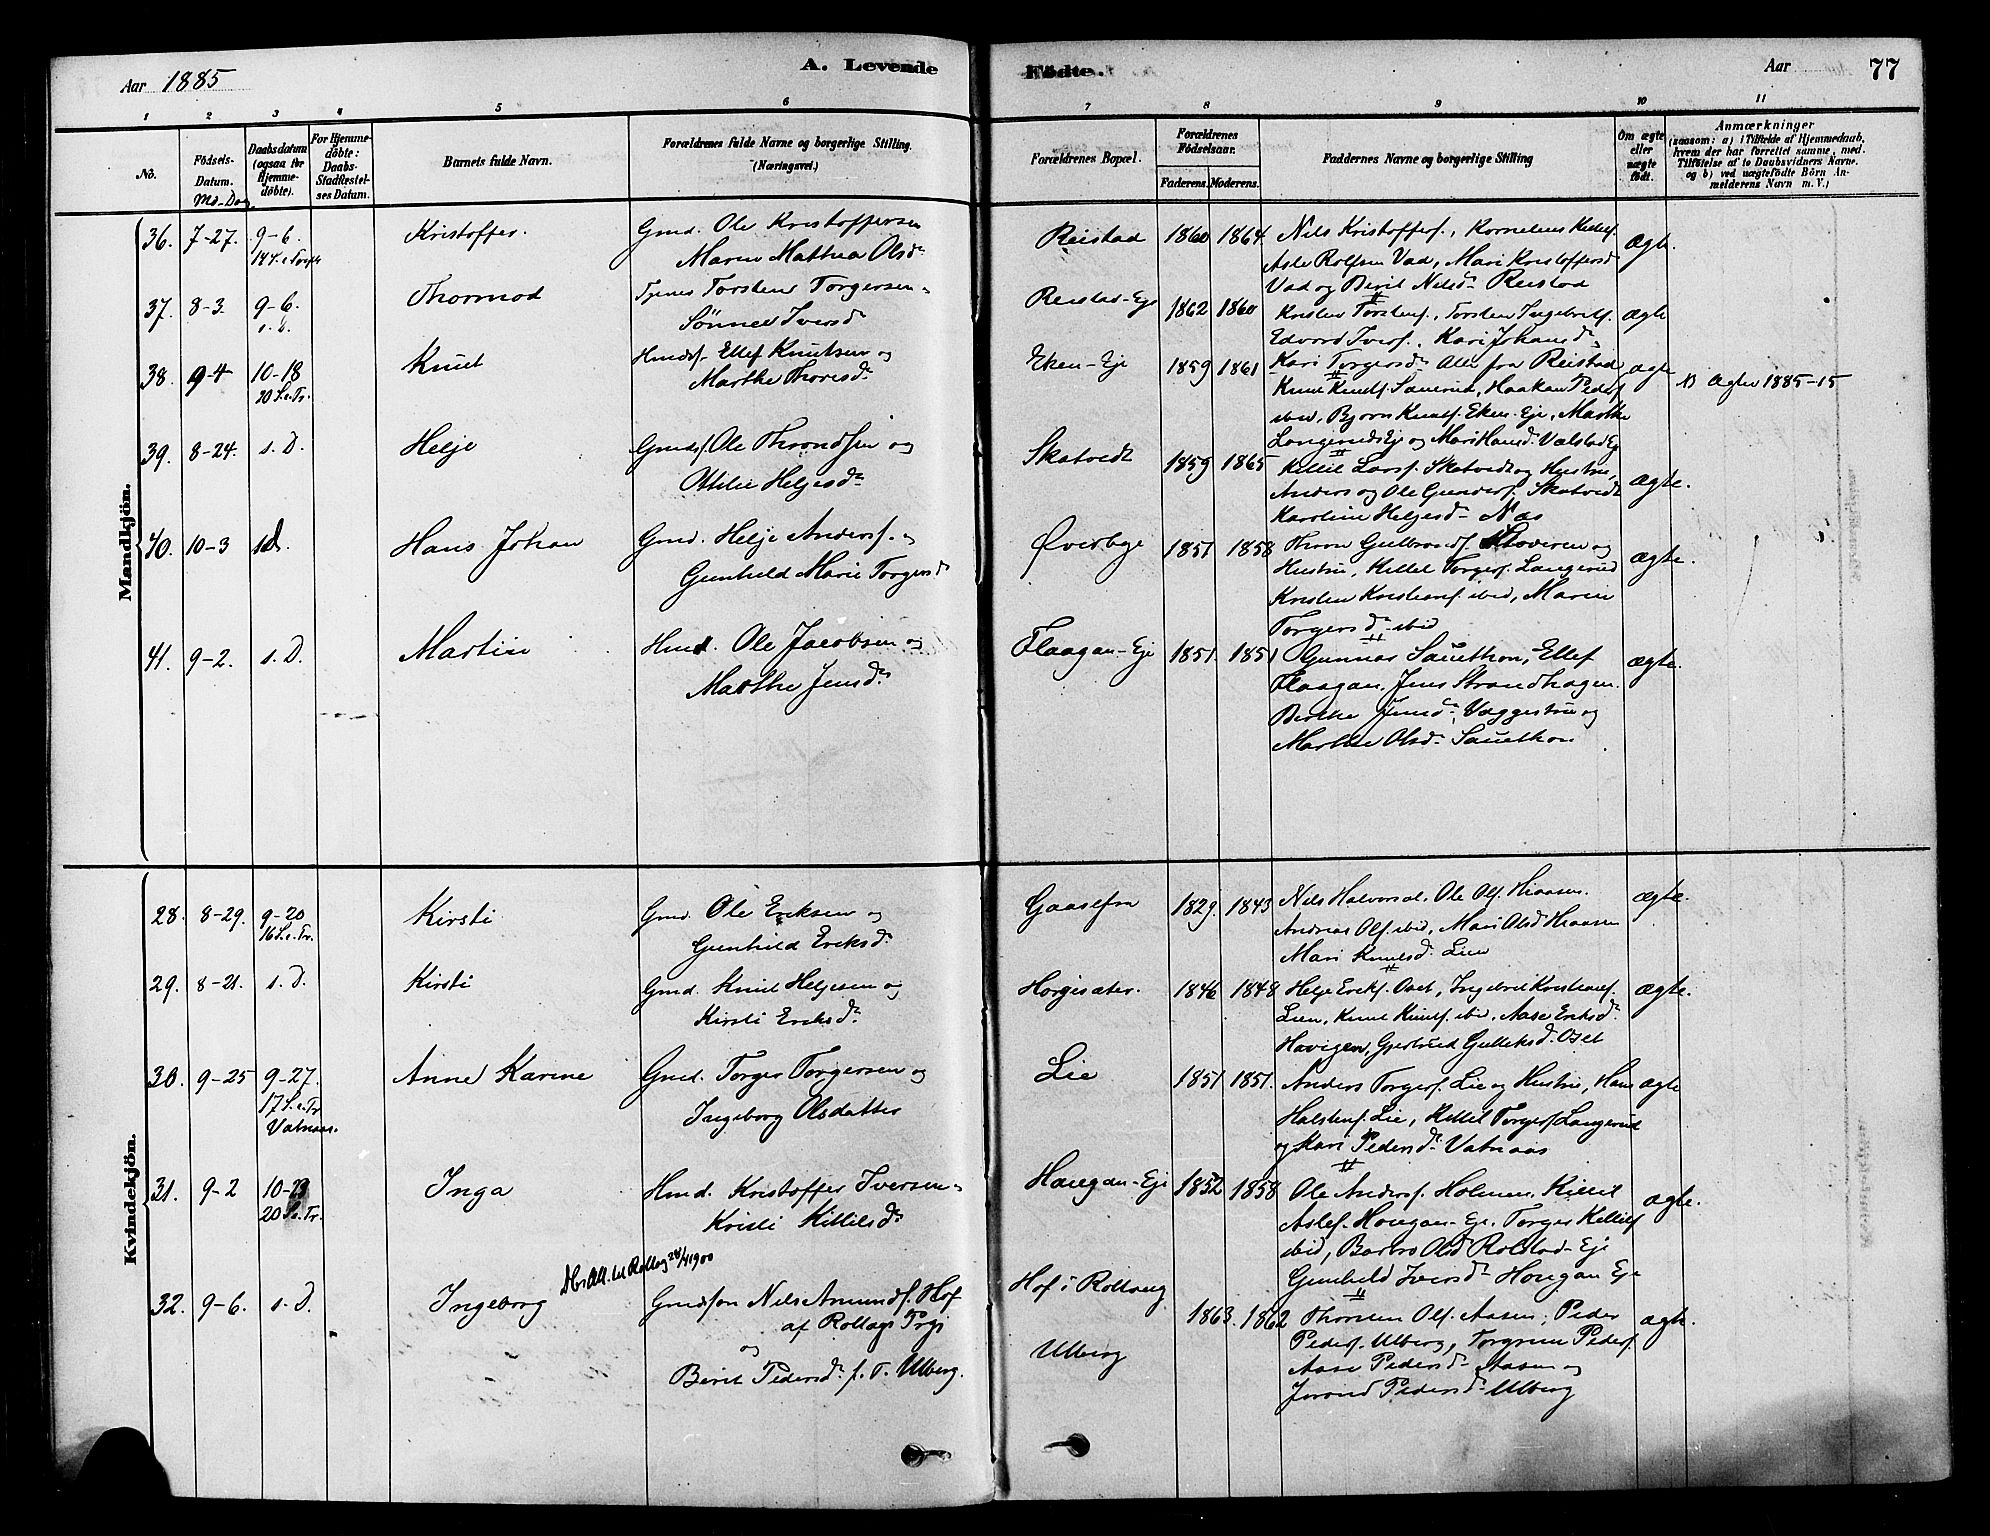 Aar 1885
A. Levende
Födte.
Aar
77
1 2 3 4 5 6 7 8 9 10 11
No.
Födsels-
Datum.
Md-Dag
Daabsdatum
(ogsaa for
Hjemme-
döbte).
For Hjemme-
döbte:
Daabs-
Stadfæstel-
ses Datum.
Barnets fulde Navn.
Forældrenes fulde Navne og borgerlige Stilling.
(Næringsvei.)
Forældrenes Bopæl.
Forældrenes
Födselsaar.
Faderens. Moderens.
Faddernes Navne og borgerlige Stilling
Om ægte
eller
uægte
födt.
Anmærkninger
(saasom: a) i Tilfælde af Hjemmedaab,
hvem der har forrettet samme, med
Tilföielse af to Daabsvidners Navne,
og b) ved uægtefödte Börn An-
melderens Navn m. V.)
Mandkjön.
36. 7-27. 9-6.
14 S. e. Trefh
Kristoffer.
Gmd. Ole Kristoffersen
Maren Mathea Olsdr
Reistad
1860 1864
Nils Kristoffers., Kornelius
Asle Rolfsen Vad, Mari Kristoffersdr
Vad og Birit Nilsdr Reistad
Ægte.
37. 8-3. 9-6.
s. D.
Thormod
Torsten Torgersen
Sönnev Iversd
Reistad-Eje
1862 1860
Kristen Torstens., Torsten Ingebrits.
Edvard Ivers., Kari Johansdr
Kari Torgersdr Alle fra Reistad
ægte
38. 9-4 10-18
20 S. e. Tr.
Knut
Hmds. Ellef Knutsen og
Marthe Thoresdr
Eken-Eje
1859 1861
Knut Knuts. Sauerud, Haakan Peders.
ibid, Bjørn Knuts. Eken-Eje, Marthe
Langerud Eje og Mari Hansdr Valstad Ej
ægte
NB Ægtev 1885-15
39. 8-24. s. D.
Helje
Gmds. Ole Throndsen og
Othilie Heljesdr
Skatvedt
1859 1865
Kittil Lars. Skatvedt og Hustru,
Anders og Ole Gunders. Skatvedt
Karoline Heljesdr Næs
ægte.
40. 10-3 s. d.
Hans Johan
Gmd. Helje Anders. og
Gunhild Marie Torgersd
Øverbye
1851 1858
Thron Gulbrands. Stoveren og
Hustru, Kittel Torgers. Langerud
Kristen Kristians. ibid, Maren
Torgersdr ibid
ægte.
41. 9-2. s. D.
Martin
Hmd. Ole Jacobsen og
Marthe Jensdr
Flaagan-Eje
1851. 1851
Gunnar Sauethon, Ellef
Flaagan, Jens Strandhagen.
Berthe Jensdr Væggestue og
Marthe Olsdr Sauethon
ægte.
Kvindekjön.
28. 8-29. 9-20
16 S. e. Tr.
Kirsti
Gmd. Ole Eriksen og
Gunhild Eriksdr
Gaaslfra
1829. 1843
Nils Halvorsdl. Ole Ols. Hraasen.
Andreas Ols. ibid, Mari Olsd Hraasen
Mari Knutsdr Lien
ægte.
29. 8-21. s. D.
Kirsti
Gmd. Knut Heljesen og
Kirsti Eriksdr
Horgesæter.
1846 1848
Helje Eriks. Oset, Ingebrit Kristians.
Lien, Knut Knuts. ibid, Aase Eriksdr
Havigen, Gjertrud Gulleksd. Oset
ægte.
30. 9-25 9-27.
17 S. e. Tr
Vatnaas.
Anne Karine
Gmd. Torger Torgersen og
Ingeborg Olsdatter
Lie
1851 1851.
Anders Torgers. Lie og Hustru, Hans
Halstens. Lie, Kittil Torgers. Langerud
og Kari Pedersdr Vatnaas
ægte
31. 9-2 10-23
20 S. e. Tr.
Inga
Hmd. Kristoffer Iversen
Kristi Kittilsdr
Haugan-Eje
1852 1858
Ole Anders. Holmen, Kittil
Aslef. Hougan-Eje, Torger Kittils.
ibid, Barbro Olsd Rolstad-Eje
Gunhild Iversdr Hougan Eje
ægte.
Dbs Att. til Rollag 24/4 1900
32. 9-6. s. D.
Ingeborg
Gmdsøn Nils Amunds. Hof
af Rollags Prgj
og
Birit Pedersdr f. T. Ulberg.
Hof i Rollaug
Ulberg
1863. 1862
Thorsten Ols. Aasen, Peder
Peders. Ulberg, Torgrim Peders.
Aase Pedersdr Aasen og
Jorand Pedersdr Ulberg
ægte.